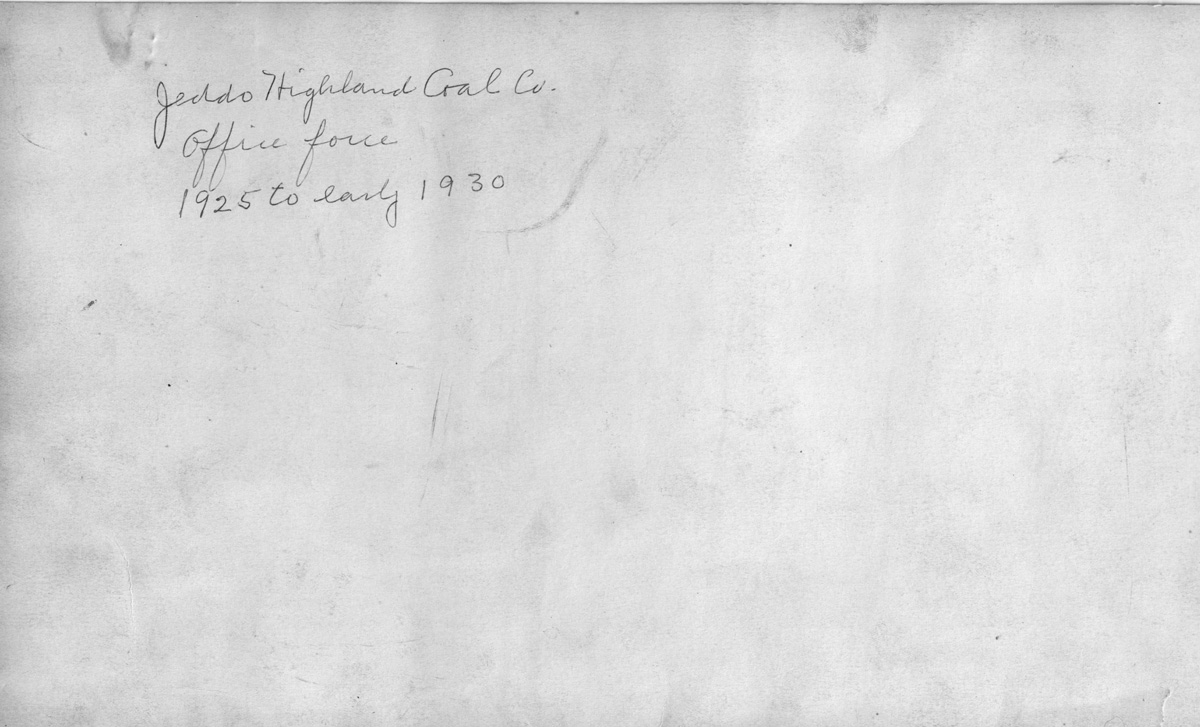 Jeddo Highland Coal Co.
Office force
1925 to early 1930